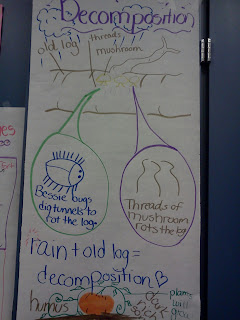 Decomposition
old log
threads
mushroom
Bessie bugs
dig tunnels to
rot the log
Threads of
mushroom
rots the log
rain + old log =
decomposition
humus
dark
plant
will
grow